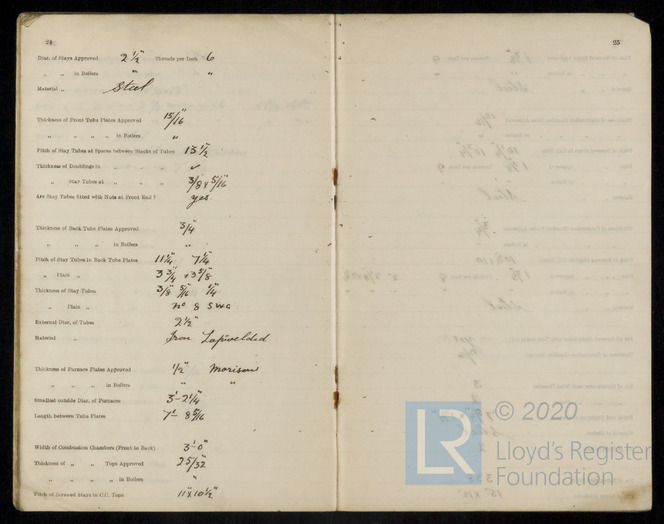 24
Diar. of Stays Approved 2 1/2" Threads per Inch 6
„ „ in Boilers " "
Material „ Steel
Thickness of Front Tube Plates Approved 15/16"
„ „ „ „ in Boilers "
Pitch of Stay Tubes at Spaces between Stacks of Tubes 13 1/2"
Thickness of Doublings in „ „ „ ✓
„ Stay Tubes at „ „ „ 3/8 & 5/16"
Are Stay Tubes fitted with Nuts at Front End? yes
Thickness of Back Tube Plates Approved 3/4"
„ „ „ in Boilers "
Pitch of Stay Tubes in Back Tube Plates 11 1/4" 7 1/4"
„ Plain „ 3 3/4" x 3 5/8"
Thickness of Stay Tubes 3/8" 5/16" 1/4"
„ Plain „ No 8 SWG
External Diar. of Tubes 2 1/2"
Material „ Iron Lapwelded
Thickness of Furnace Plates Approved 1/2" Morison
„ „ „ in Boilers " "
Smallest outside Diar. of Furnaces 3'-2 1/4"
Length between Tube Plates 7'- 8 5/16
Width of Combustion Chambers (Front to Back) 3'-0"
Thickness of „ „ Tops Approved 25/32"
„ „ „ in Boilers "
Pitch of Screwed Stays in C.C. Tops 11" x 10 1/2"
25
LR © 2020
Lloyd's Register
Foundation